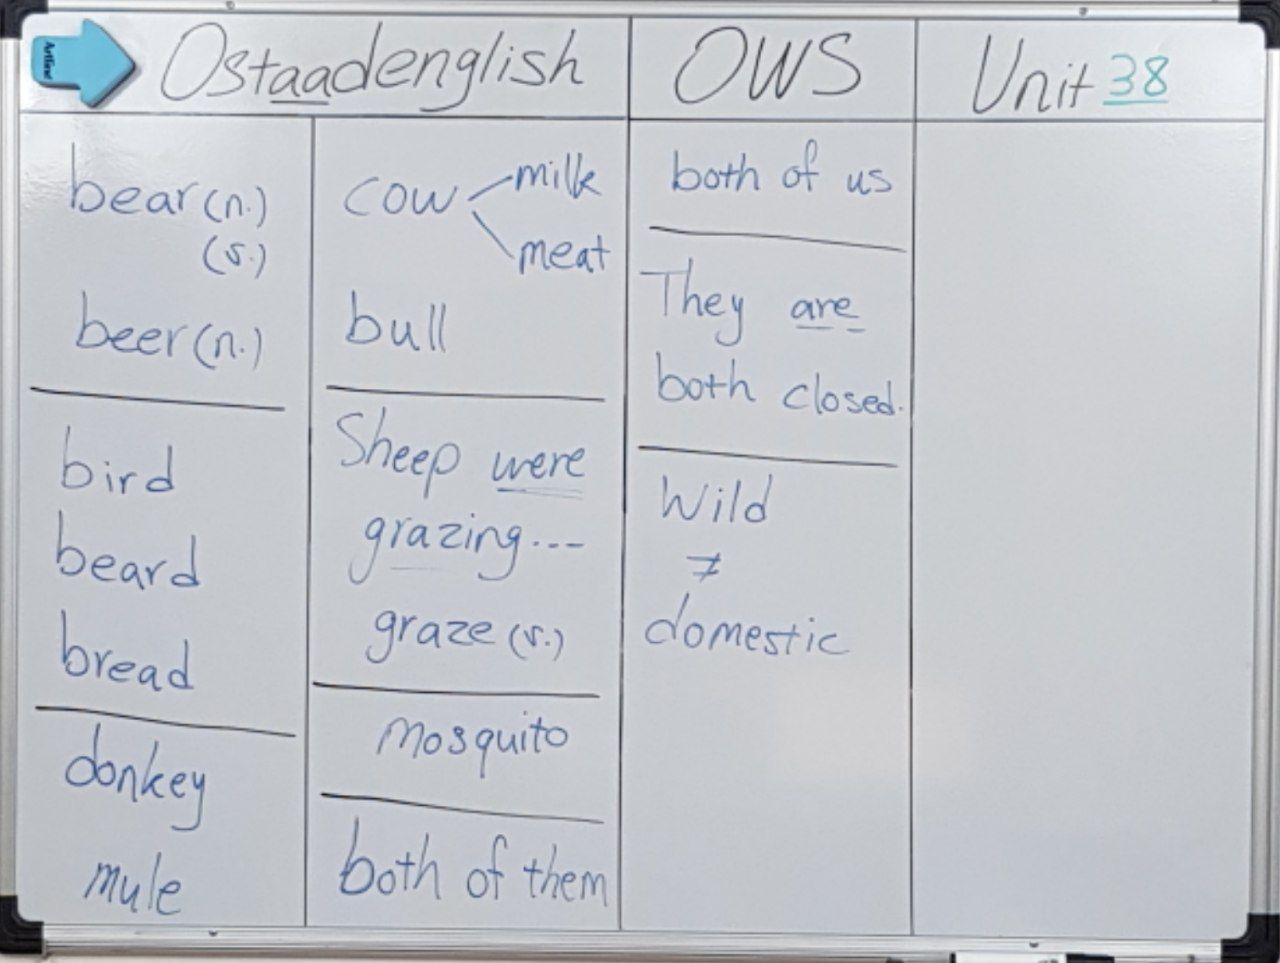 Artline
Ostaadenglish
OWS
Unit 38
bear (n.)
(v.)
beer (n.)
bird
beard
bread
donkey
mule
cow milk
meat
bull
Sheep were
grazing...
graze (v.)
mosquito
both of them
both of us
They are
both closed.
Wild
≠
domestic